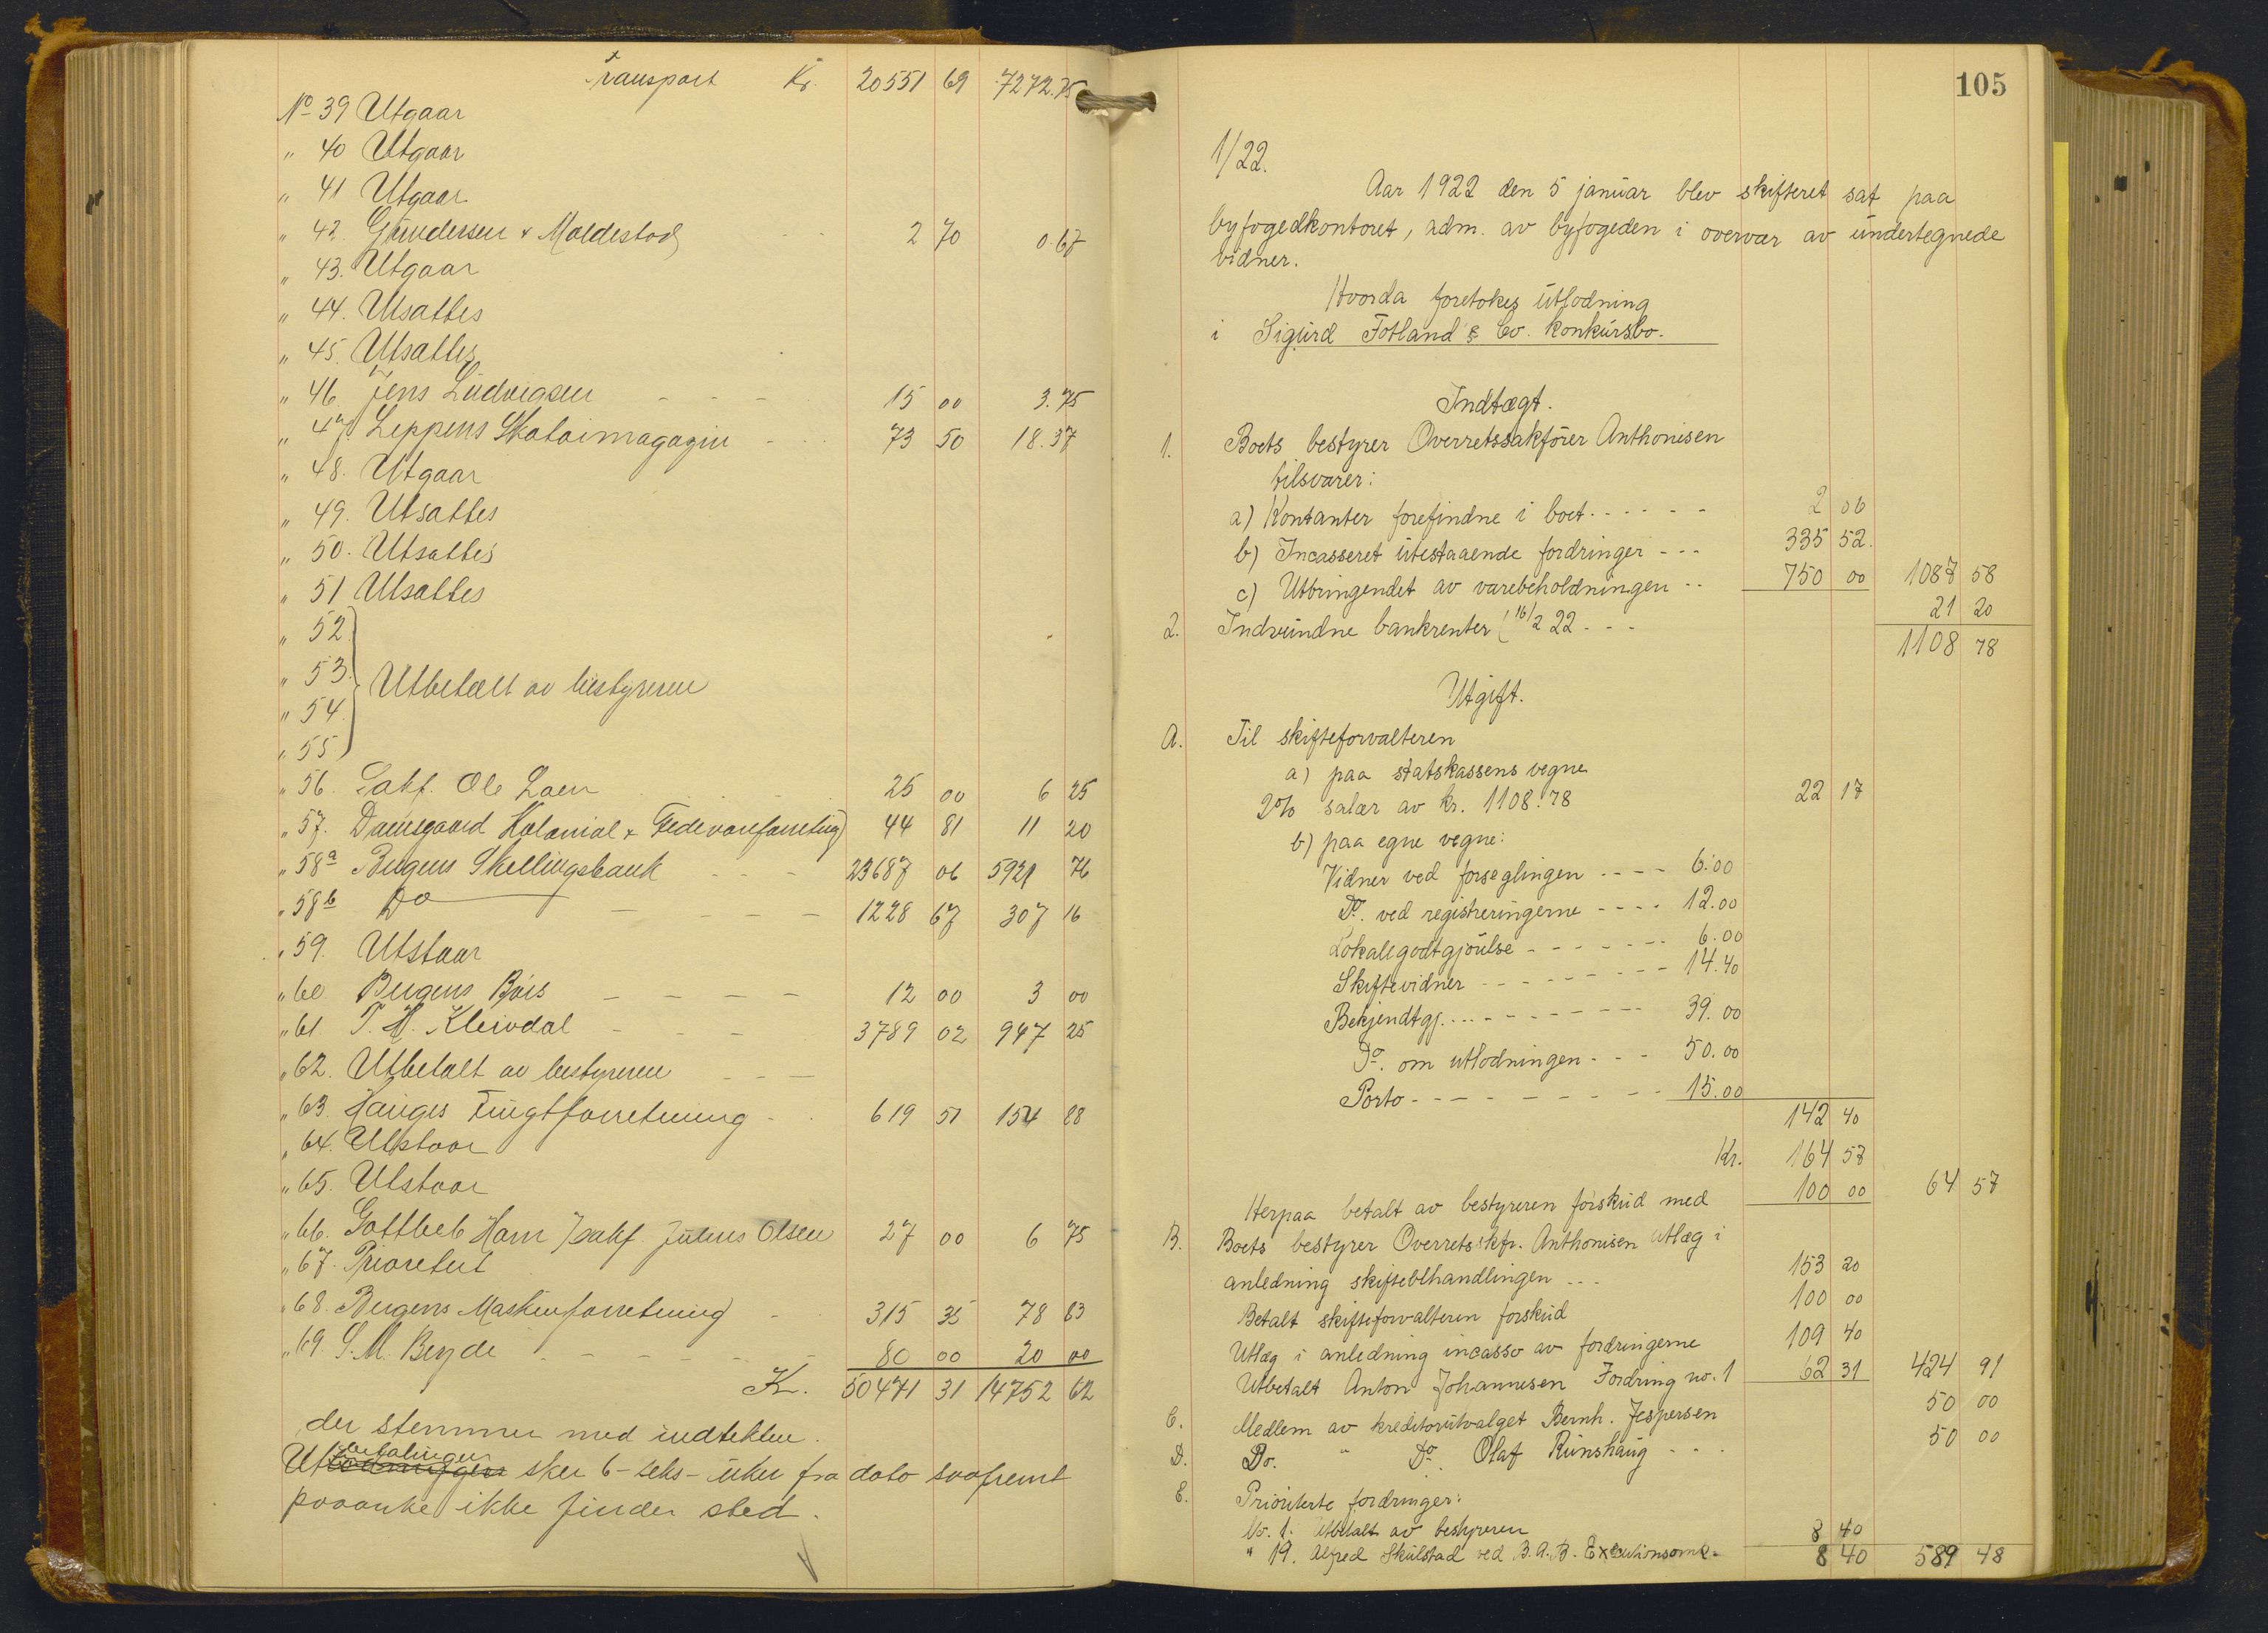 Transport Kr. 20551 69 7272.75
No 39 Utgaar
" 40 Utgaar
" 41 Utgaar
" 42. Gundersen & Moldestad 2 70 0.67
" 43. Utgaar
" 44. Utsattes
" 45. Utsattes
" 46. Jens Ludvigsen - - - 15 00 3.75
" 47. Leppens Skotøimagazin - 73 50 18.37
" 48. Utgaar
" 49. Utsattes
" 50. Utsattes
" 51 Utsattes
" 52.
" 53.
Utbetalt av bestyreren
" 54.
" 55
" 56. Sakf. Ole Loen 25 00 6 25
" 57. Damsgaard Kolonial & Fedevareforretng 44 81 11 20
" 58a Bergens Skillingsbank - - - 23687 06 5921 76
" 58b Do - - - - 1228 67 307 16
" 59. Utstaar
" 60 Bergens Børs - - - - 12 00 3 00
" 61 T. H. Kleivdal - - - 3789 02 947 25
" 62. Utbetalt av bestyreren - - -
" 63. Hauges Frugtforretning - 619 51 154 88
" 64. Utstaar
" 65. Utstaar
" 66. Gottlieb Ham / sakf. Julius Olsen 27 00 6 75
" 67. Prioritert
" 68. Bergens Maskinforretning - 315 35 78 83
" 69. S. M. Beyde - - - - - - 80 00 20 00
Kr. 50471 31 14752 62
der stemmer med indtekten.
betalingen
Utlodningen sker 6 - seks - uker fra dato saafremt
paaanke ikke finder sted.
105
1/22.
Aar 1922 den 5 januar blev skifteret sat paa
byfogedkontoret, adm. av byfogeden i overvær av undertegnede
vidner.
Hvorda foretokes utlodning
i Sigurd Fotland & Co. konkursbo.
Indtægt.
1. Boets bestyrer Overretssakfører Anthonisen
tilsvarer:
a) Kontanter forefindne i boet - - - - - - 2 06
b) Incasseret utestaaende fordringer - - - 335 52.
c) Utbringendet av varebeholdningen - - 750 00 1087 58
2. Indvundne bankrenter (16/2 22 - - - 21 20
1108 78
Utgift.
A. Til skifteforvalteren
a) paa statskassens vegne
2% salær av kr. 1108.78 22 17
b) paa egne vegne:
Vidner ved forseglingen - - - - 6.00
Do. ved registreringerne - - - - 12.00
Lokalegodtgjørelse - - - - - - - 6.00
Skiftevidner - - - - - - - - 14.40
Bekjendtgj. - - - - - - - - - 39.00
Do. om utlodningen - - - 50.00
Porto - - - - - - - - - - 15.00
142 40
Kr. 164 57
Herpaa betalt av bestyreren forskud med 100 00 64 57
B. Boets bestyrer Overretsskfr. Anthonisen utlæg i
anledning skiftebehandlingen - - - 153 20
Betalt skifteforvalteren forskud 100 00
Utlæg i anledning incasso av fordringerne 109 40
Utbetalt Anton Johannesen Fordring no. 1 62 31 424 91
C. Medlem av kreditorutvalget Bernh. Jespersen 50 00
D. Do. " Do. Olaf Runshaug - - - 50 00
E. Prioriterte fordringer:
No. 1. Utbetalt av bestyreren 8 40
" 19. Alfred Skulstad ved B.A.B. Executionsomk. 8 40 589 48